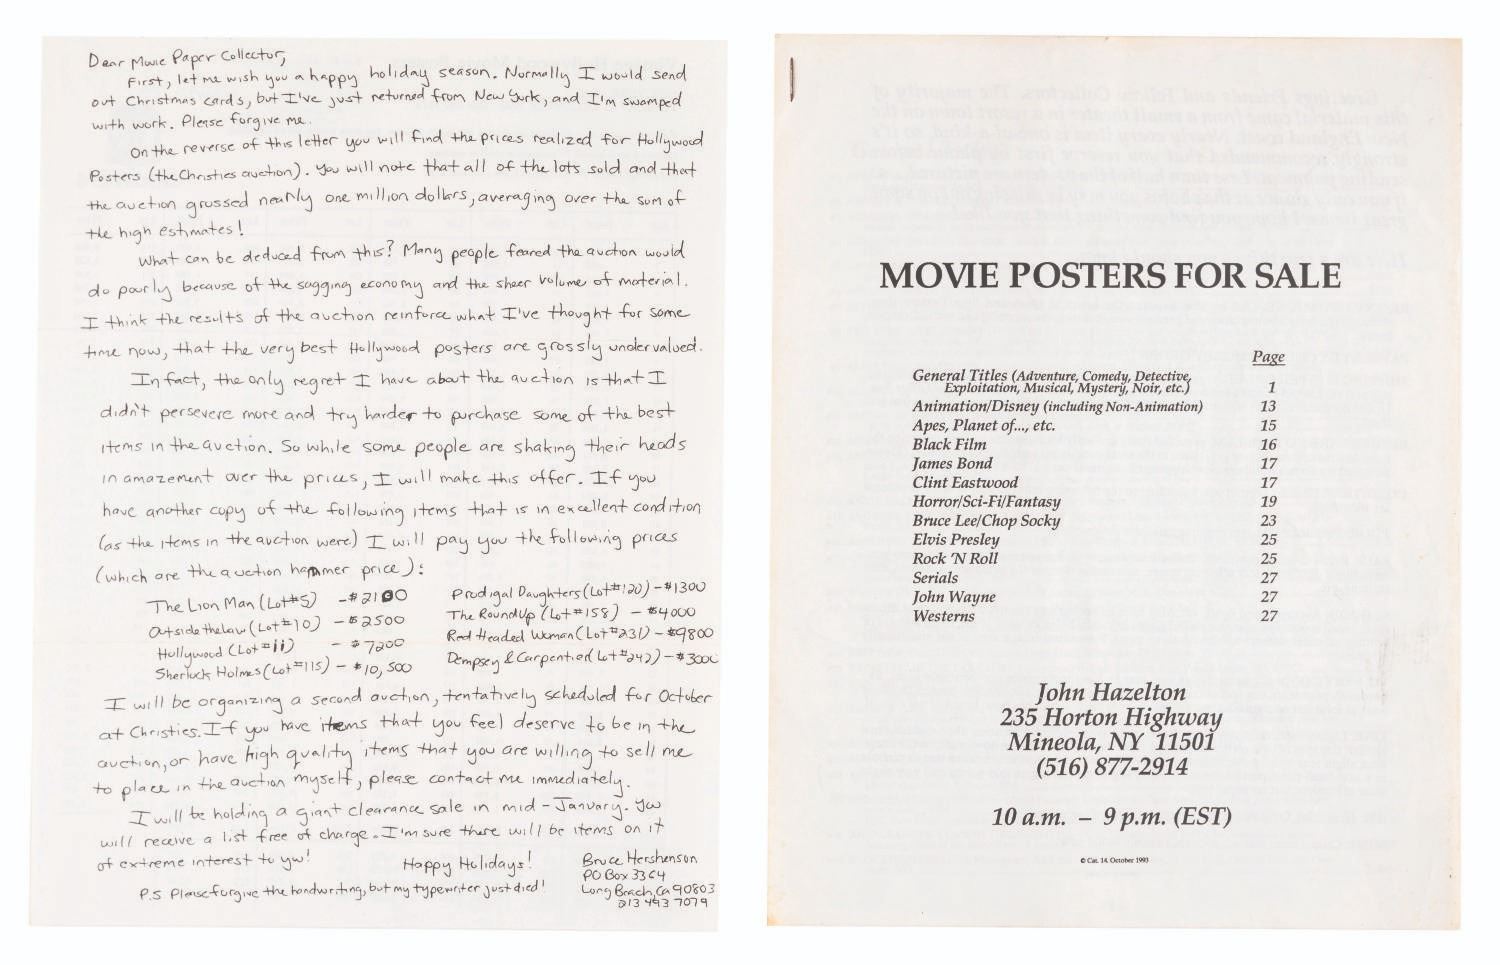 Dear Movie Paper Collector,
First, let me wish you a happy holiday season. Normally I would send
out Christmas cards, but I've just returned from New York, and I'm swamped
with work. Please forgive me.
On the reverse of this letter you will find the prices realized for Hollywood
Posters (the Christies auction). You will note that all of the lots sold and that
the auction grossed nearly one million dollars, averaging over the sum of
the high estimates!
What can be deduced from this? Many people feared the auction would
do poorly because of the sagging economy and the sheer volume of material.
I think the results of the auction reinforce what I've thought for some
time now, that the very best Hollywood posters are grossly undervalued.
In fact, the only regret I have about the auction is that I
didn't persevere more and try harder to purchase some of the best
items in the auction. So while some people are shaking their heads
in amazement over the prices, I will make this offer. If you
have another copy of the following items that is in excellent condition
(as the items in the auction were) I will pay you the following prices
(which are the auction hammer price):
The Lion Man (Lot #5) - $2100
Outside the Law (Lot #10) - $2500
Hollywood (Lot #11) - $7200
Sherlock Holmes (Lot #115) - $10,500
Prodigal Daughters (Lot #120) - $1300
The Round Up (Lot #158) - $4000
Red Headed Woman (Lot #231) - $9800
Dempsey & Carpentied Lot #242) - $3000
I will be organizing a second auction, tentatively scheduled for October
at Christies. If you have items that you feel deserve to be in the
auction, or have high quality items that you are willing to sell me
to place in the auction myself, please contact me immediately.
I will be holding a giant clearance sale in mid-January. You
will receive a list free of charge. I'm sure there will be items on it
of extreme interest to you!
Happy Holidays!
Bruce Hershenson
PO Box 3364
Long Beach, Ca 90803
213 493 7079
P.S. Please forgive the handwriting, but my typewriter just died!
MOVIE POSTERS FOR SALE
Page
General Titles (Adventure, Comedy, Detective,
Exploitation, Musical, Mystery, Noir, etc.) 1
Animation/Disney (including Non-Animation) 13
Apes, Planet of..., etc. 15
Black Film 16
James Bond 17
Clint Eastwood 17
Horror/Sci-Fi/Fantasy 19
Bruce Lee/Chop Socky 23
Elvis Presley 25
Rock 'N Roll 25
Serials 27
John Wayne 27
Westerns 27
John Hazelton
235 Horton Highway
Mineola, NY 11501
(516) 877-2914
10 a.m. – 9 p.m. (EST)
© Cat. 14. October 1993